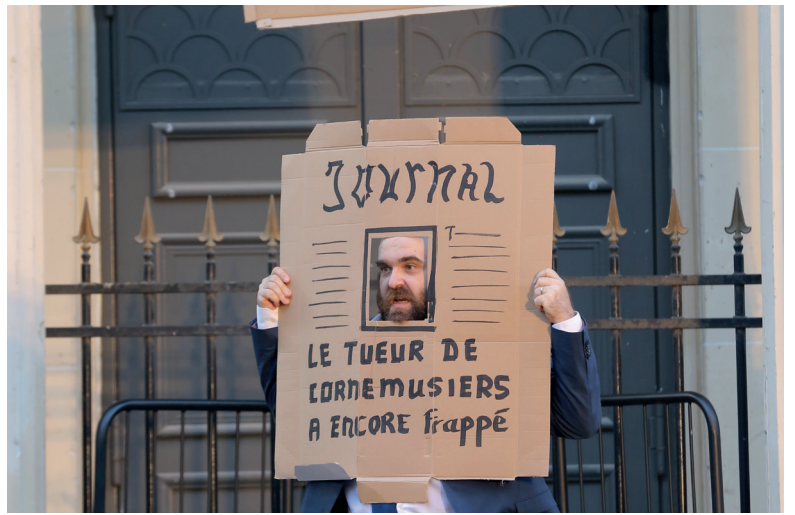 JOURNAL
LE TUEUR DE
CORNEMUSIERS
A ENCORE frappé